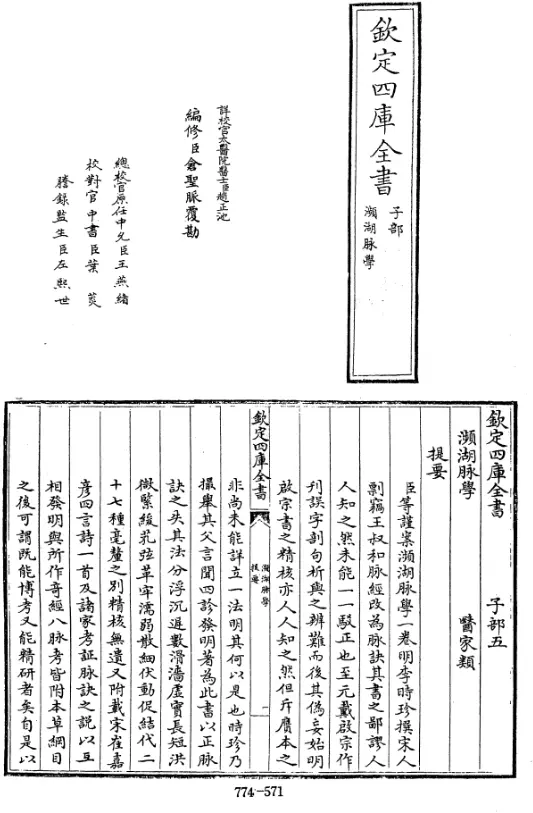 欽定四庫全書
子部
瀕湖脉學
詳校官太醫院醫士臣趙正池
編修臣倉聖脈覆勘
總校官原任中允臣王燕緒
校對官中書臣葉菼
謄錄監生臣左熙世
欽定四庫全書 子部五
瀕湖脉學 醫家類
提要
臣等謹案瀕湖脉學一卷明李時珍撰宋人
剽竊王叔和脉經改為脉訣其書之鄙謬人
人知之然未能一一駁正也至元戴啟宗作
刊誤字剖句析與之辨難而後其偽妄始明
啟宗書之精核亦人人知之然但斥贋本之
欽定四庫全書
瀕湖脉學
提要
一
非尚未能詳立一法明其何以是也時珍乃
撮舉其父言聞四診發明著為此書以正脉
訣之失其法分浮沉遲數滑濇虛實長短洪
微緊緩芤弦革牢濡弱散細伏動促結代二
十七種毫釐之別精核無遺又附載宋崔嘉
彥四言詩一首及諸家考証脉訣之說以互
相發明與所作奇經八脉考皆附本草綱目
之後可謂既能博考又能精研者矣自是以
774-571